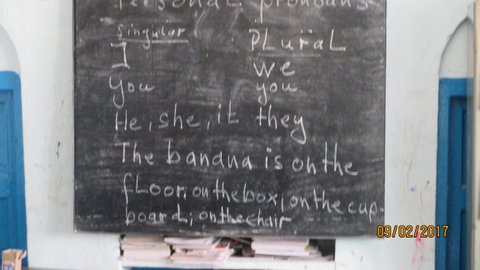 Personal pronouns
Singular PLural
I we
You you
He, she, it they
The banana is on the
floor; on the box; on the cup
board; on the chair
09/02/2017